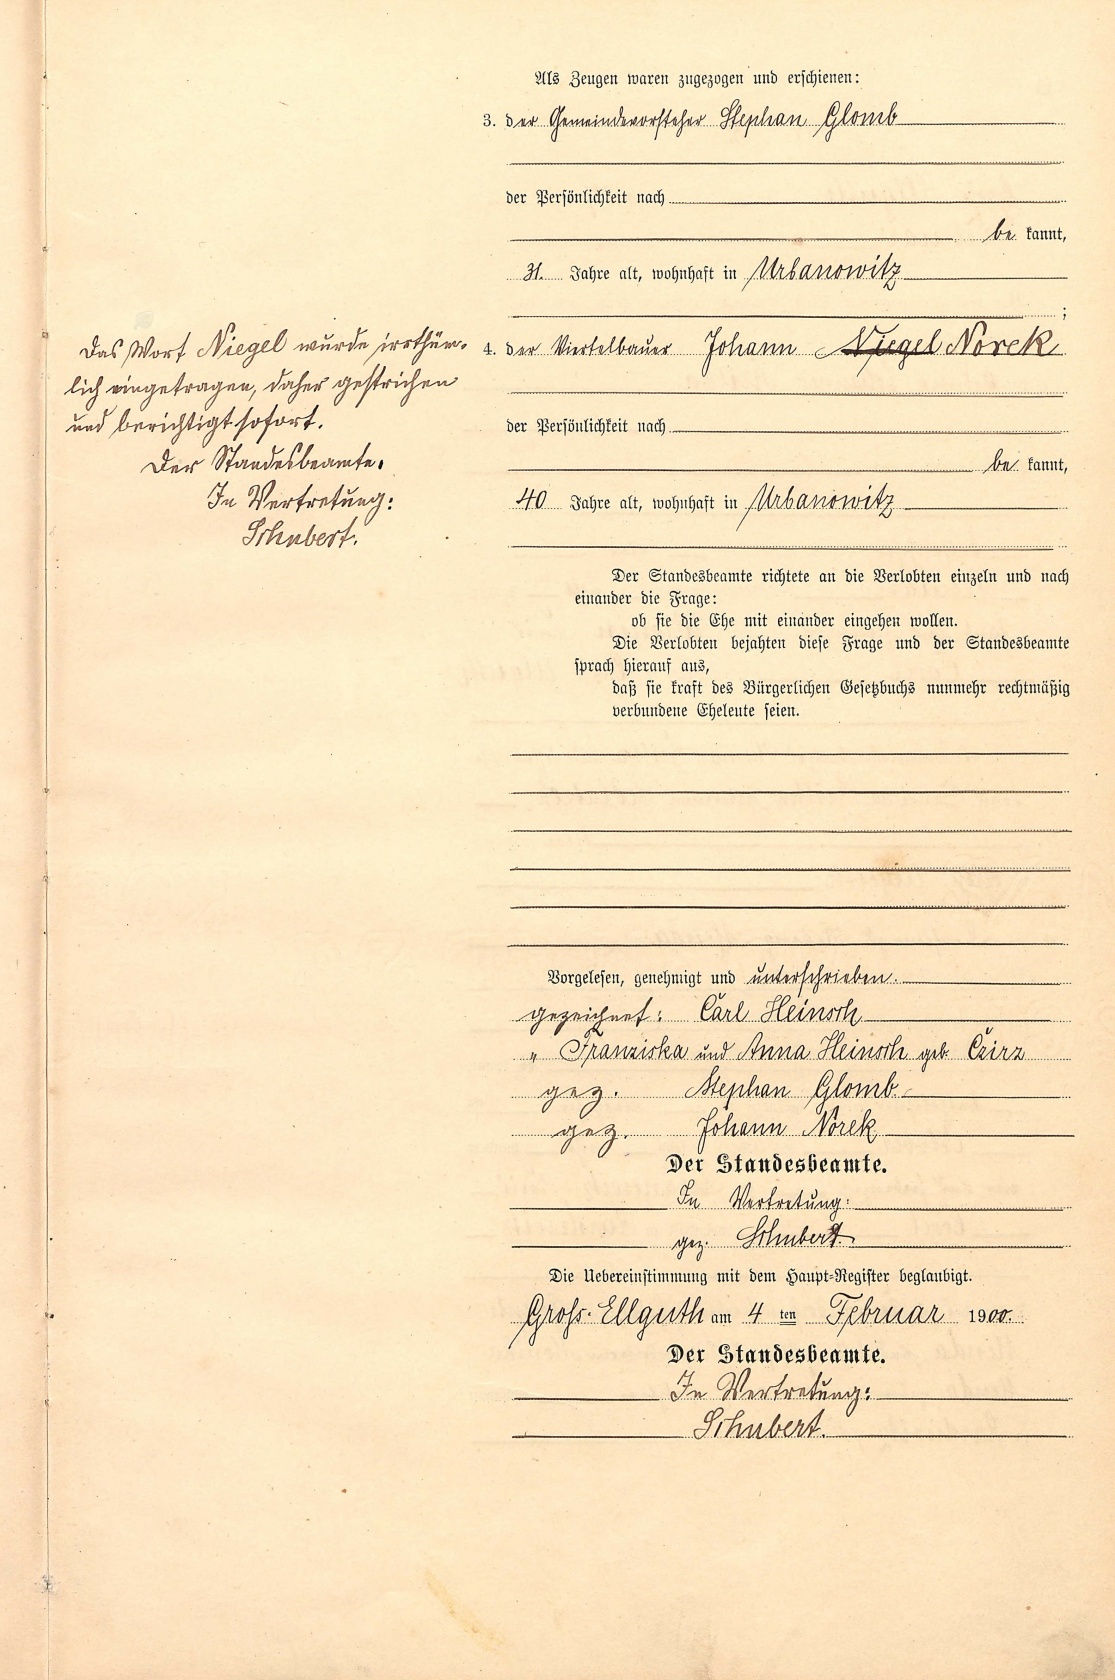 Als Zeugen waren zugezogen und erschienen:
3. der Gemeindevorsteher Stephan Glomb
der Persönlichkeit nach
be kannt,
31. Jahre alt, wohnhaft in Urbanowitz
;
4. der Viertelbauer Johann Niegel Norek
der Persönlichkeit nach
be kannt,
40 Jahre alt, wohnhaft in Urbanowitz
Das Wort Niegel wurde irrthüm-
lich eingetragen, daher gestrichen
und berichtigt sofort.
Der Standesbeamte.
In Vertretung:
Schubert.
Der Standesbeamte richtete an die Verlobten einzeln und nach
einander die Frage:
ob sie die Ehe mit einander eingehen wollen.
Die Verlobten bejahten diese Frage und der Standesbeamte
sprach hierauf aus,
daß sie kraft des Bürgerlichen Gesetzbuchs nunmehr rechtmäßig
verbundene Eheleute seien.
Vorgelesen, genehmigt und unterschrieben.
gezeichnet: Carl Heinsch
" Franziska und Anna Heinsch geb. Czirz
gez. Stephan Glomb
gez. Johann Norek
Der Standesbeamte.
In Vertretung:
gez. Schubert.
Die Uebereinstimmung mit dem Haupt-Register beglaubigt.
Gross-Ellguth am 4 ten Februar 1900.
Der Standesbeamte.
In Vertretung:
Schubert.